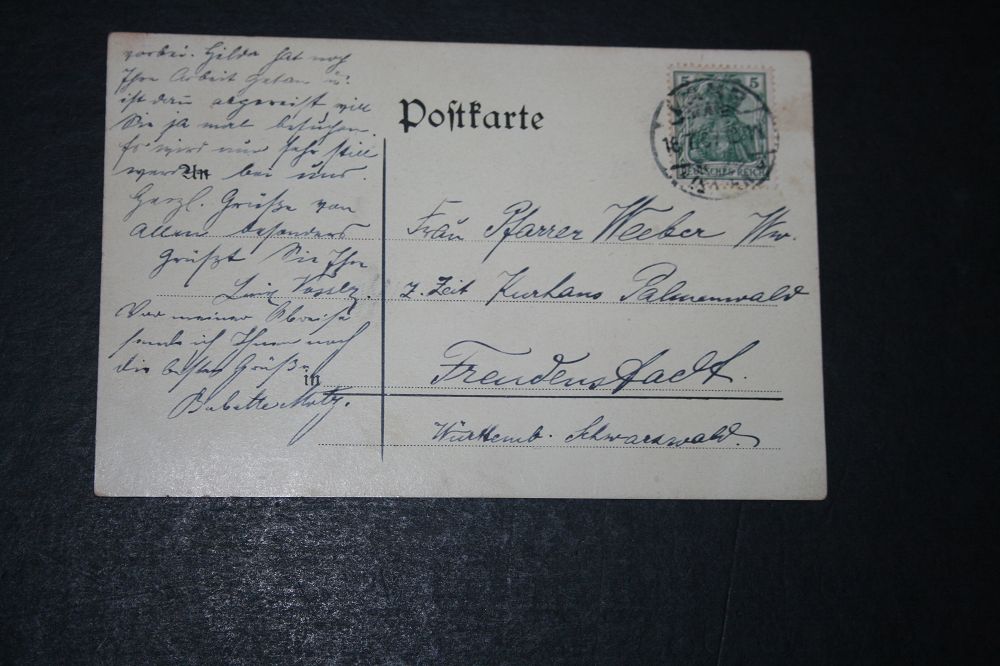 vorbei. Hilda hat noch
Ihre Arbeit getan u.
ist dan abgereist will
Sie ja mal besuchen.
Es wird nun sehr still
werden bei uns.
Herzl. Grüße von
allen besonders
grüßt Sie Ihre
Vor meiner Abreise
sende ich Ihnen noch
die besten Grüße
Babette Motz.
Postkarte
An
in
5 5
DEUTSCHES REICH
Frau Pfarrer Weeber Ww.
z. Zeit Kurhaus Palmenwald
Freudenstadt.
Württemb. Schwarzwald